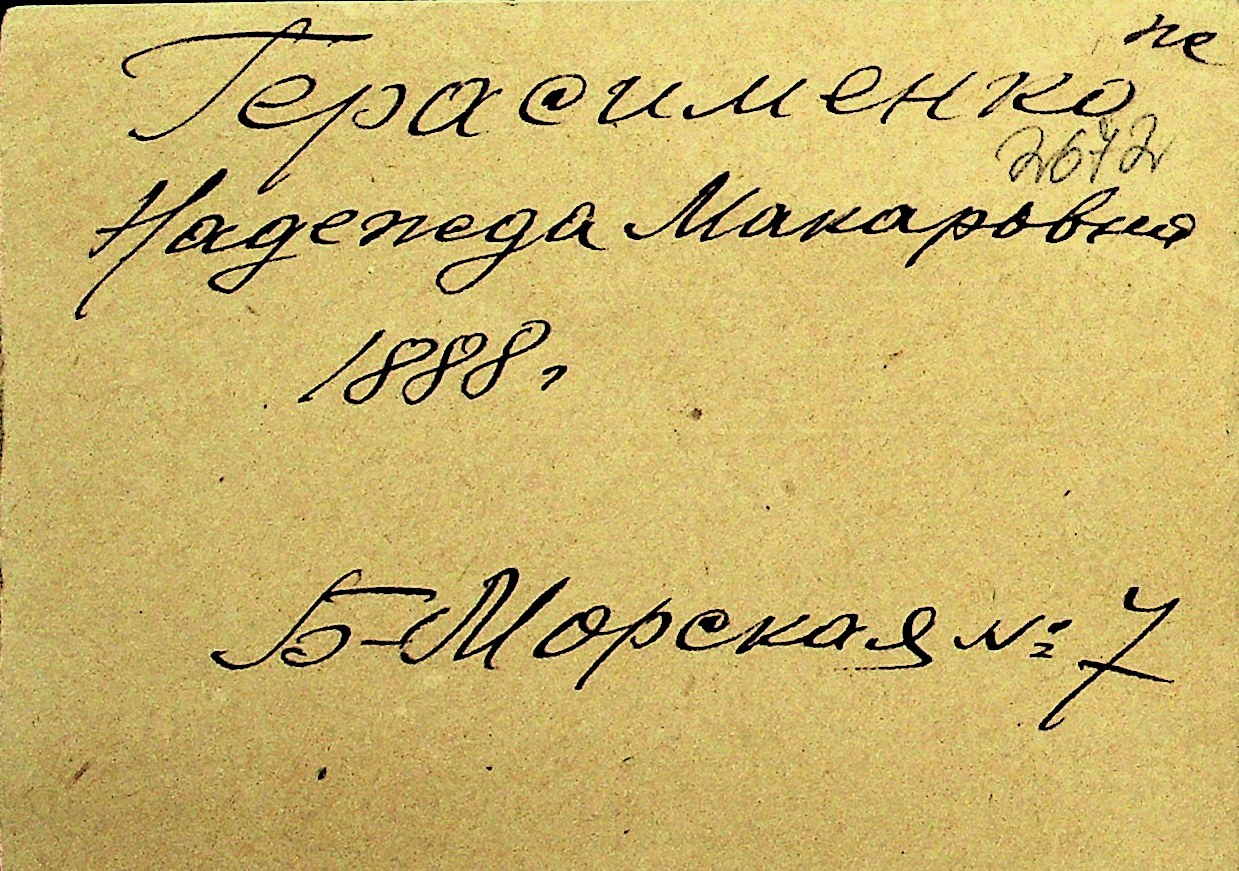 не
Герасименко
2672
Надежда Макаровна
1888г
Б-Морская № 7